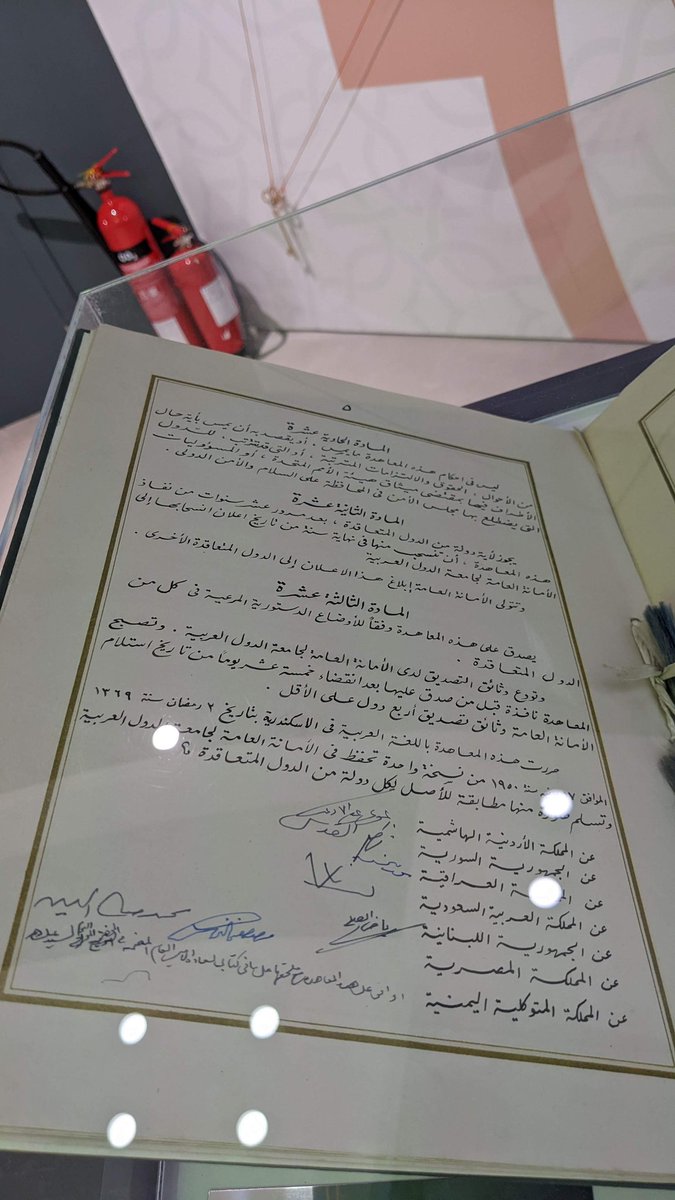 ٥
المادة الحادية عشرة
ليس فى أحكام هذه المعاهدة ما يمس . أو يقصد به أن يمس بأية حال
من الأحوال . الحقوق والالتزامات المترتبة ، أو التى قد تترتب . للدول
الأطراف فيها بمقتضى ميثاق هيئة الأمم المتحدة ، أو المسؤوليات
التى يضطلع بها مجلس الأمن فى المحافظة على السلام والأمن الدولى .
المادة الثانية عشرة
يجوز لأية دولة من الدول المتعاقدة ، بعد مرور عشر سنوات من نفاذ
هذه المعاهدة ، أن تنسحب منها فى نهاية سنة من تاريخ اعلان انسحابها إلى
الأمانة العامة لجامعة الدول العربية
وتتولى الأمانة العامة إبلاغ هذا الاعلان إلى الدول المتعاقدة الأخرى .
المادة الثالثة عشرة
يصدق على هذه المعاهدة وفقاً للأوضاع الدستورية المرعية فى كل من
الدول المتعاقدة .
وتودع وثائق التصديق لدى الأمانة العامة لجامعة الدول العربية . وتصبح
المعاهدة نافذة قبل من صدق عليها بعد انقضاء خمسة عشر يوماً من تاريخ استلام
الأمانة العامة وثائق تصديق أربع دول على الأقل .
حررت هذه المعاهدة باللغة العربية فى الاسكندرية بتاريخ ٢ رمضان سنة ١٣٦٩
الموافق ١٩٥٠ من نسخة واحدة تحفظ فى الأمانة العامة لجامعة الدول العربية
وتسلم منها مطابقة للأصل لكل دولة من الدول المتعاقدة
عن المملكة الأردنية الهاشمية
عن الجمهورية السورية
عن العراقية
عن المملكة العربية السعودية
عن الجمهورية اللبنانية
عن المملكة المصرية
عن المملكة المتوكلية اليمنية